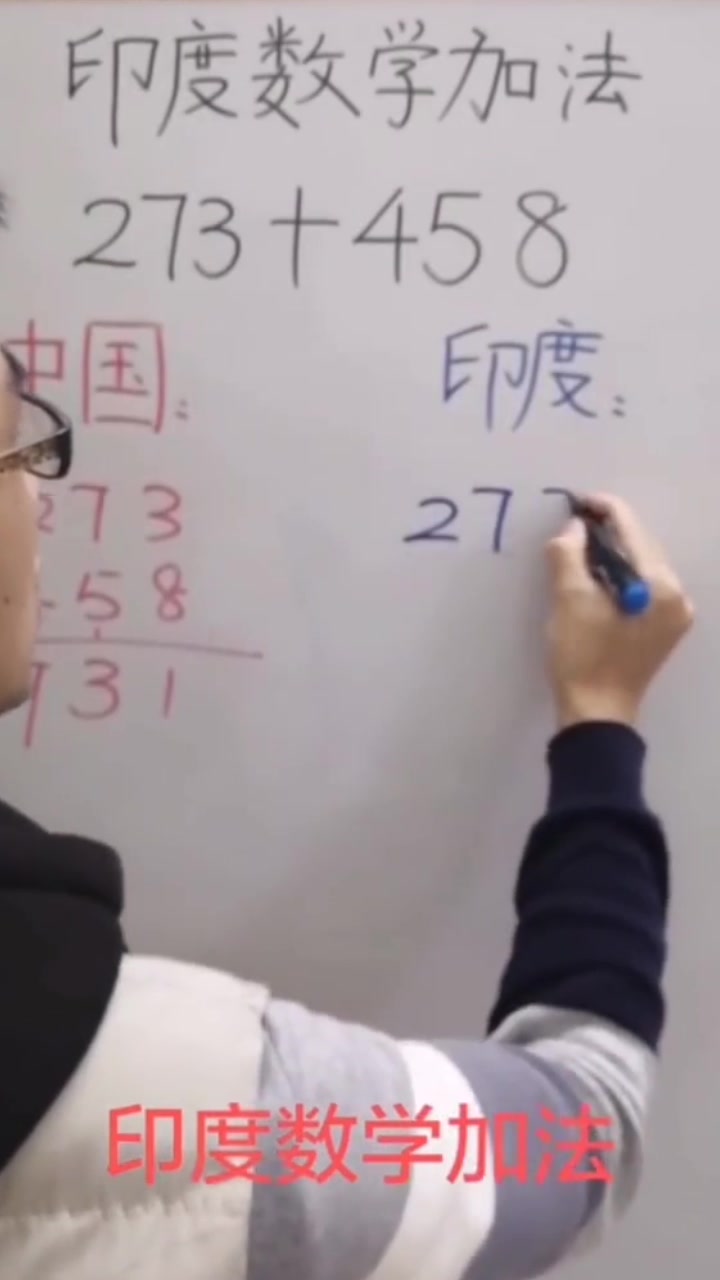 印度数学加法
273+458
中国:
印度:
273
58
731
27
印度数学加法